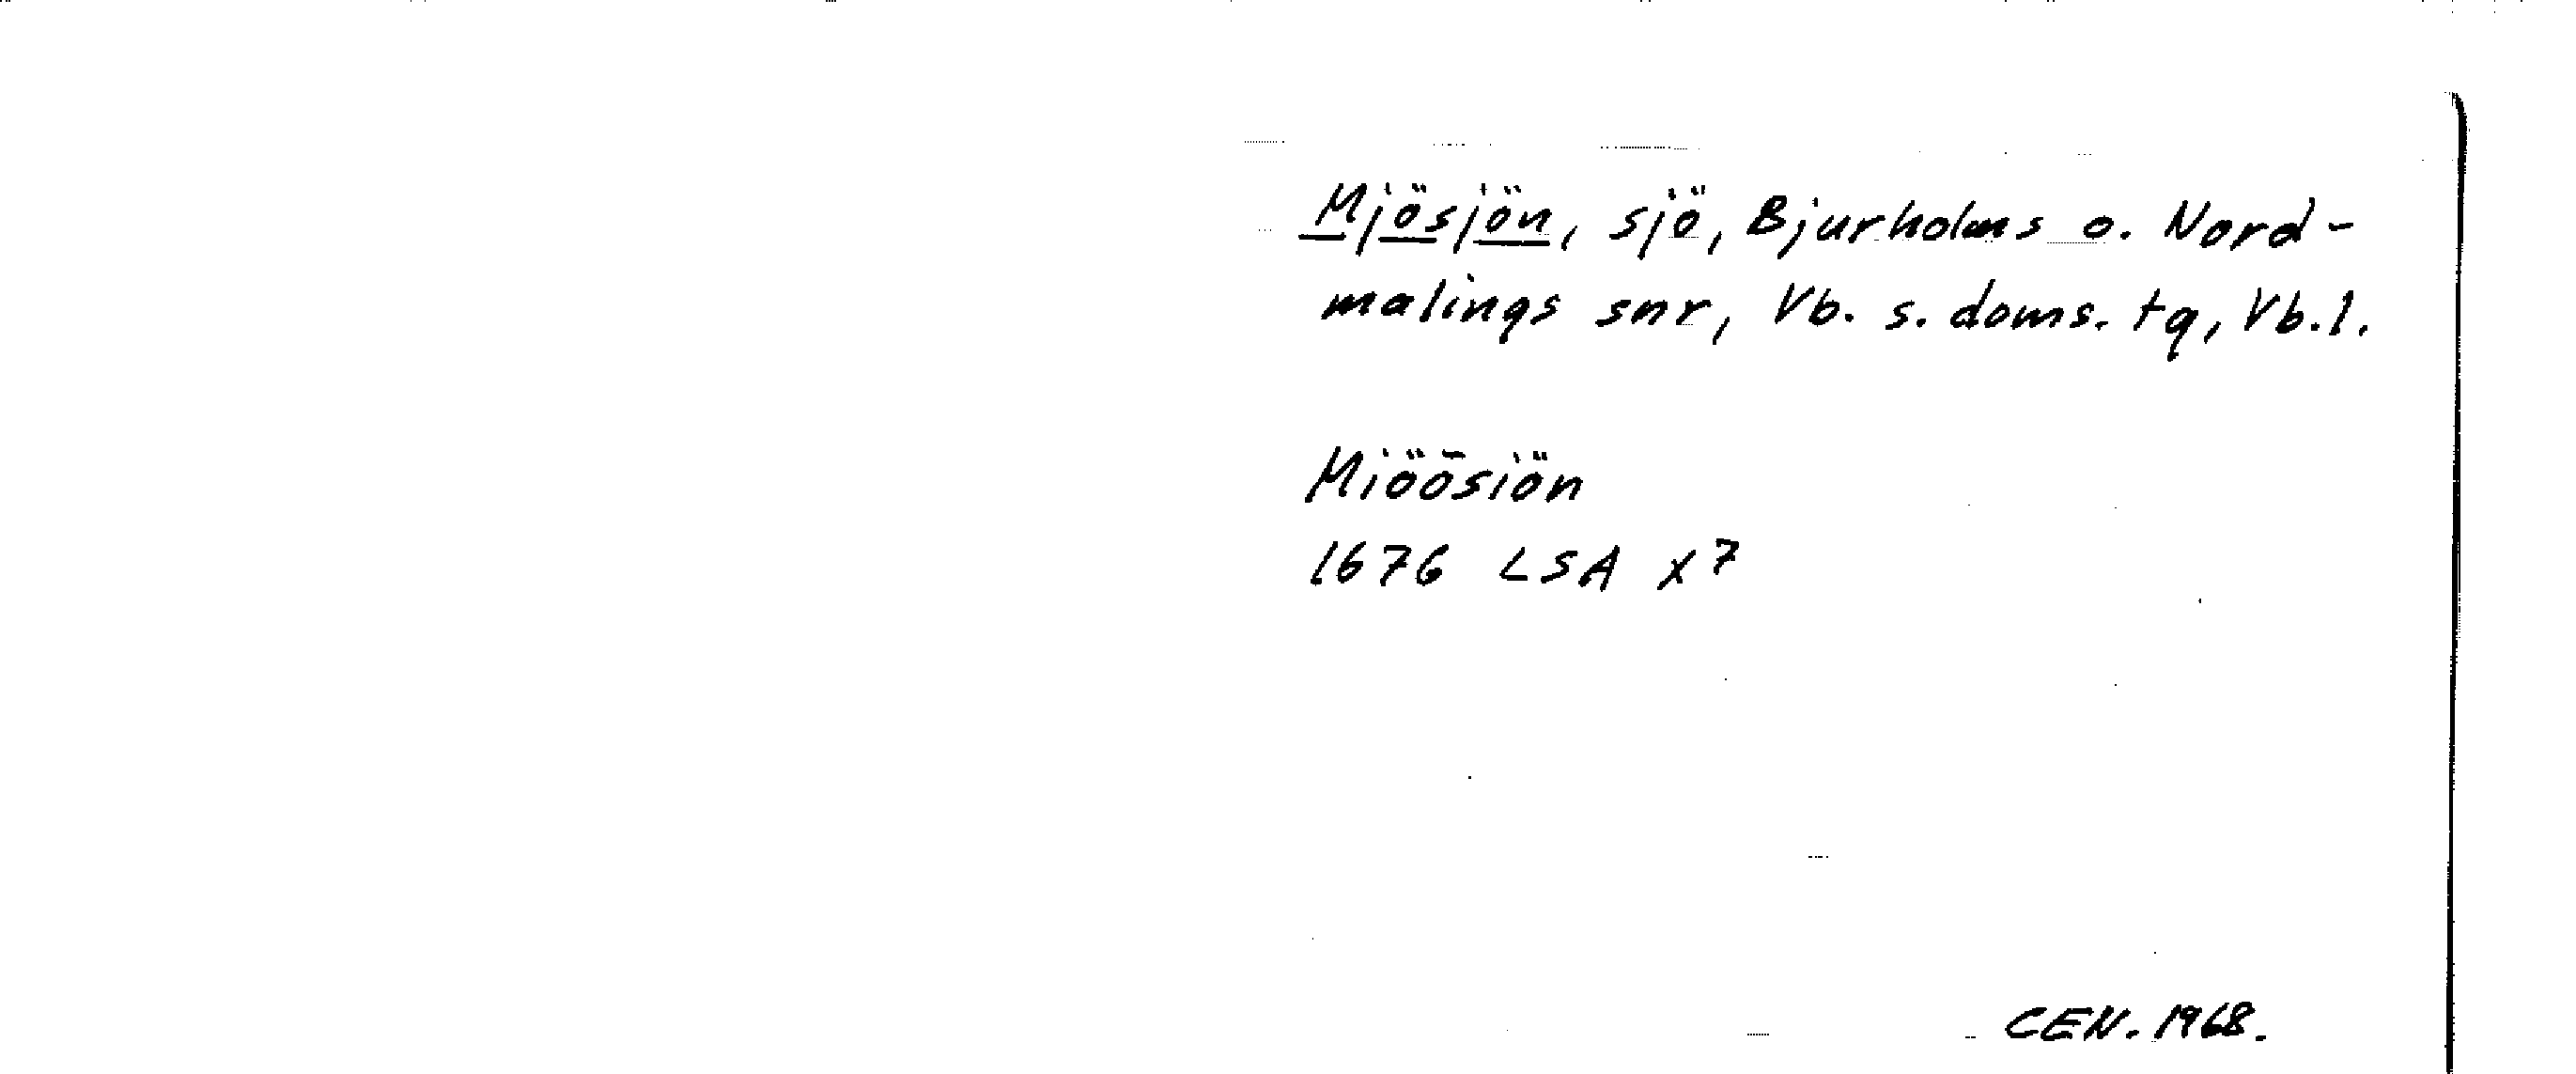 Mjösjön, sjö, Bjurholms o. Nord-
malings snr, Vb. s. doms. tg, Vb.l.
Miöösiön
1676 LSA X7
CEN. 1968.